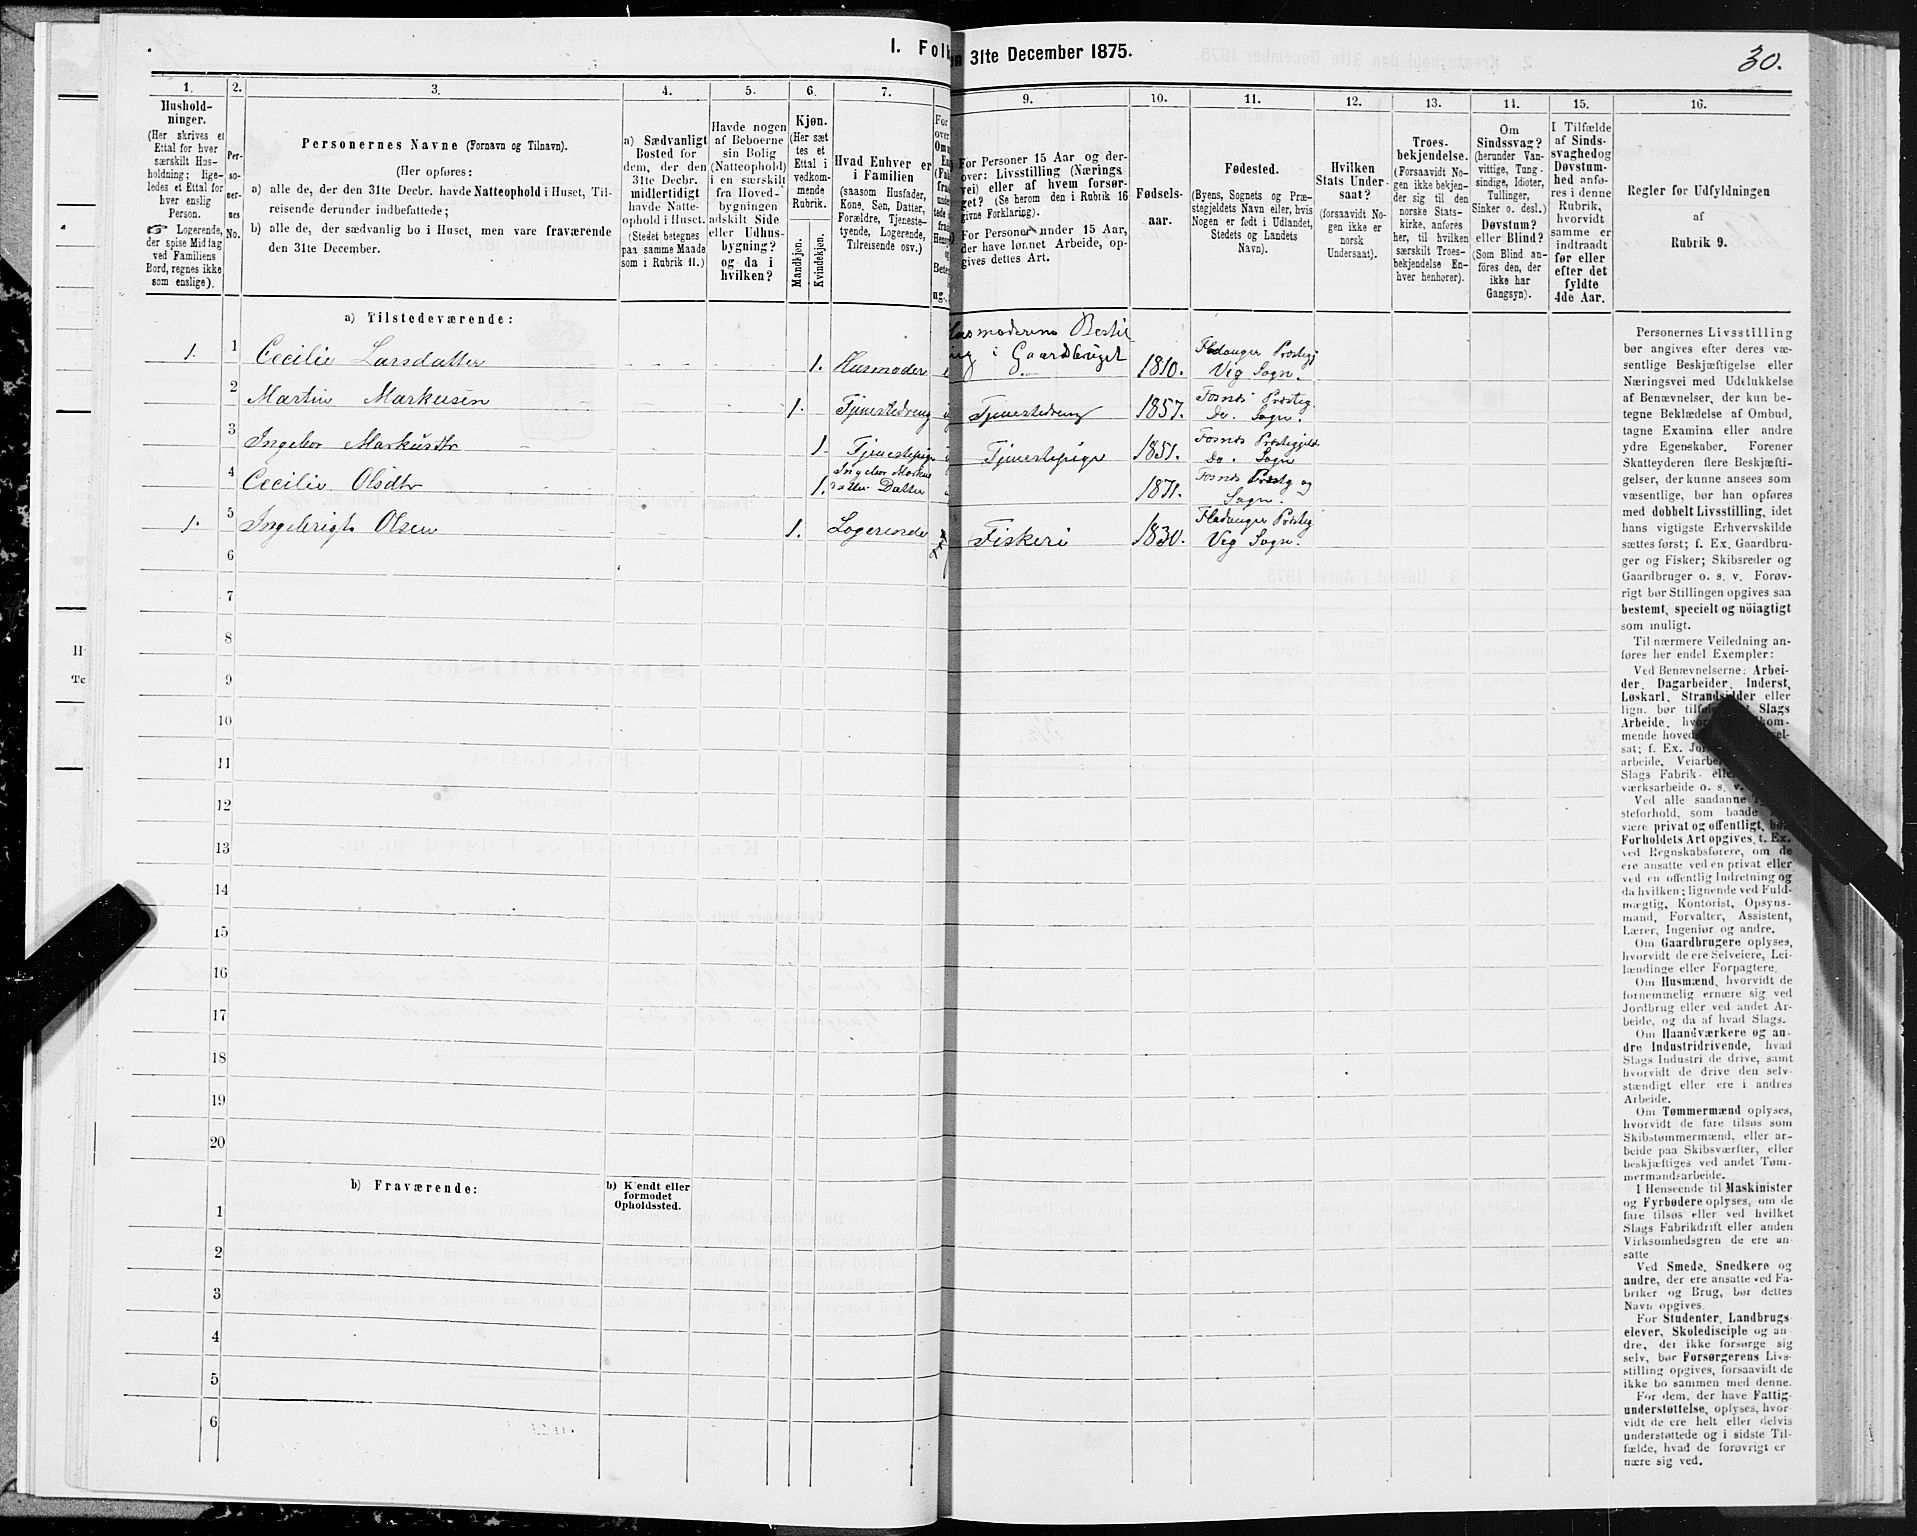 I. Folk
en 31te December 1875.
30.
1.
2.
3.
4.
5.
6.
7.
9.
10.
11.
12.
13.
14.
15.
16.
Hushold-
ninger.
(Her skrives et
Ettal for hver
særskilt Hus-
holdning; lige-
ledes et Ettal for
hver enslig
Person.
☞ Logerende,
der spise Middag
ved Familiens
Bord, regnes ikke
som enslige).
Per-
so-
ner-
nes
No.
Personernes Navne (Fornavn og Tilnavn).
(Her opføres:
a) alle de, der den 31te Decbr. havde Natteophold i Huset, Til-
reisende derunder indbefattede;
b) alle de, der sædvanlig bo i Huset, men vare fraværende
den 31te December.
a) Sædvanligt
Bosted for
dem, der den
31te Decbr.
midlertidigt
havde Natte-
ophold i Huset.
(Stedet betegnes
paa samme Maade
som i Rubrik 11.)
Havde nogen
af Beboerne
sin Bolig
(Natteophold)
i en særskilt
fra Hoved-
bygningen
adskilt Side
eller Udhus-
bygning?
og da i
hvilken?
Kjøn.
(Her sæt
tes et
Ettal i
vedkom-
mende
Rubrik.
Mandkjøn.
Kvindekjøn.
Hvad Enhver er
i Familien
(saasom Husfader,
Kone, Søn, Datter,
Forældre, Tjeneste-
tyende, Logerende,
Tilreisende osv.)
For Personer 15 Aar og der-
over: Livsstilling (Nærings
vei) eller af hvem forsør-
get? (Se herom den i Rubrik 16
givne Forklaring).
For Personer under 15 Aar,
der have lønnet Arbeide, op-
gives dettes Art.
Fødsels-
aar.
Fødested.
(Byens, Sognets og Præ-
stegjeldets Navn eller, hvis
Nogen er født i Udlandet,
Stedets og Landets
Navn).
Hvilken
Stats Under-
saat?
(forsaavidt No-
gen ikke er
norsk
Undersaat).
Troes-
bekjendelse.
(Forsaavidt No-
gen ikke bekjen-
der sig til den
norske Stats-
kirke, anføres
her, til hvilken
særskilt Troes-
bekjendelse En-
hver henhører).
Om
Sindssvag?
(herunder Van-
vittige, Tung-
sindige, Idioter,
Tullinger,
Sinker o. desl.)
Døvstum?
eller Blind?
(Som Blind an-
føres den, der
ikke har
Gangsyn).
I Tilfælde
af Sinds-
svaghed og
Døvstum-
hed anfø-
res i denne
Rubrik,
hvorvidt
samme er
indtraadt
før eller
efter det
fyldte
4de Aar.
Regler for Udfyldningen
af
Rubrik 9.
a) Tilstedeværende:
1. 1 Cecilie Larsdatter 1. Husmoder
Husmoderens Besti
i Gaardbruget 1810. Fladanger Præstegj
Veg Sogn.
2 Martin Markusen 1. Tjenestedreng Tjenestedreng 1857. Fosnæs Præsteg.
Do. Sogn.
3 Ingebor Markusdtr 1. Tjenestepige Tjenestepige 1851. Fosnæs Præstegjeld
Do. Sogn
4 Cecilie Olsdtr 1. Ingebor Markus
datter Datter 1871. Fosnæs Præstg og
Sogn.
1. 5 Ingebrigt Olsen 1. Logerende Fiskeri 1830. Fladanger Præsteg
Veg Sogn.
6
7
8
9
10
11
12
13
14
15
16
17
18
19
20
b) Fraværende:
b) Kjendt eller
formodet
Opholdssted.
1
2
3
4
5
6
Personernes Livsstilling
bør angives efter deres væ-
sentlige Beskjæftigelse eller
Næringsvei med Udelukkelse
af Benævnelser, der kun be-
tegne Beklædelse af Ombud,
tagne Examina eller andre
ydre Egenskaber. Forener
Skatteyderen flere Beskjæfti-
gelser, der kunne ansees som
væsentlige, bør han opføres
med dobbelt Livsstilling, idet
hans vigtigste Erhvervskilde
sættes først; f. Ex. Gaardbru-
ger og Fisker; Skibsreder og
Gaardbruger o. s. v. Forøv-
rigt bør Stillingen opgives saa
bestemt, specielt og nöiagtigt
som muligt.
Til nærmere Veiledning an-
føres her endel Exempler:
Ved Benævnelserne: Arbei-
der, Dagarbeider, Inderst,
Løskarl, Strandsidder eller
lign. bør Slags
Arbeide,
mende
sat; f. Ex.
arbeide,
Slags Fabrik-
værksarbeide o. s. v.
Ved alle saadanne
steforhold, som baade
være privat og offentligt, bør
Forholdets Art opgives, t. Ex.
ved Regnskabsførere, om de
ere ansatte ved en privat eller
ved en offentlig Indretning og
da hvilken; lignende ved Fuld-
mægtig, Kontorist, Opsyns-
mand, Forvalter, Assistent,
Lærer, Ingeniør og andre.
Om Gaardbrugere oplyses,
hvorvidt de ere Selveiere, Lei-
lændinge eller Forpagtere.
Om Husmænd, hvorvidt de
fornemmelig ernære sig ved
Jordbrug eller ved andet Ar-
beide, og da af hvad Slags.
Om Haandværkere og an-
dre Industridrivende, hvad
Slags Industri de drive, samt
hvorvidt de drive den selv-
stændigt eller ere i andres
Arbeide.
Om Tømmermænd oplyses,
hvorvidt de fare tilsøs som
Skibstømmermænd, eller ar-
beide paa Skibsværfter, eller
beskjæftiges ved andet Tøm-
mermandsarbeide.
I Henseende til Maskinister
og Fyrbødere oplyses, om de
fare tilsøs eller ved hvilket
Slags Fabrikdrift eller anden
Virksomhedsgren de ere an-
satte
Ved Smede, Snedkere og
andre, der ere ansatte ved Fa-
briker og Brug, bør dettes
Navn opgives.
For Studenter, Landbrugs
elever, Skoledisciple og an
dre, der ikke forsørge sig
selv, bør Forsørgerens Livs-
stilling opgives, forsaavidt de
ikke bo sammen med denne.
For dem, der have Fattig-
understøttelse, oplyses, hvor-
vidt de ere helt eller delvis
understøttede og i sidste Til-
fælde, hvad de forøvrigt er
nære sig ved.